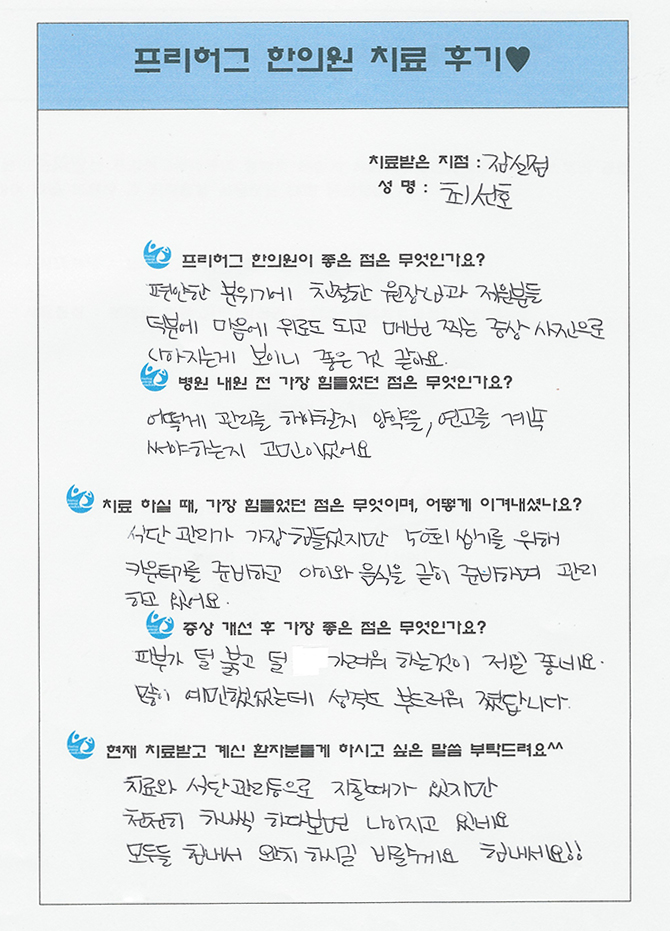 프리허그 한의원 치료 후기♥
치료받은 지점 : 잠실점
성 명 : 최선호
프리허그 한의원이 좋은 점은 무엇인가요?
편안한 분위기에 친절한 원장님과 직원분들
덕분에 마음에 위로도 되고 매번 찍는 증상 사진으로
나아지는게 보이니 좋은 것 같아요.
병원 내원 전 가장 힘들었던 점은 무엇인가요?
어떻게 관리를 해야할지 양약을, 연고를 계속
써야하는지 고민이었어요
치료 하실 때, 가장 힘들었던 점은 무엇이며, 어떻게 이겨내셨나요?
식단 관리가 가장 힘들었지만 50회 씹기를 위해
카운터기를 준비하고 아이와 음식을 같이 준비하며 관리
하고 있어요.
증상 개선 후 가장 좋은 점은 무엇인가요?
피부가 덜 붉고 덜 가려워 하는것이 제일 좋네요.
많이 예민했었는데 성격도 부드러워 졌답니다.
현재 치료받고 계신 환자분들께 하시고 싶은 말씀 부탁드려요^^
치료와 식단관리등으로 지칠때가 있지만
천천히 하나씩 하다보면 나아지고 있네요
모두들 힘내서 완치 하시길 바랄게요 힘내세요!!